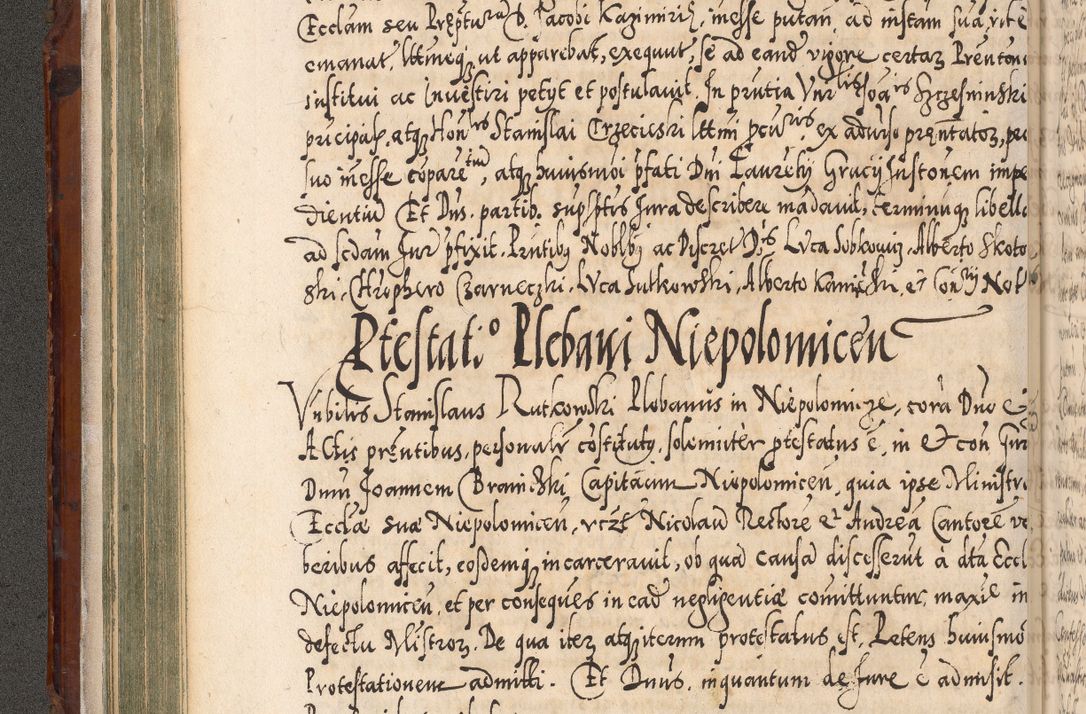 Ecclam seu Prepturā D. Jacobi Kazimiriē, inesse putan, ad instam sua, rite
emanat, lttmeqz, ut apparebat, exequut, se ad eand vigore certaz Prenton
institui ac investiri petyt et postulavit. In prntia Vnrlis Joāis Szczesninski
pricipalē, atqz Honris Stanislai Crzeciesri lttmi pcuris, ex adviso prentatoz, per
suo inesse cōparētiū, atqz huiusmoi pfati Dni Laurēty Gracij Instonem impe
dientiū Et Dns. partib. supsptis Jura describere mādavit, terminūqz libello
ad scdam Jur pfixit. Prntibz Noblbz ac Discret Dis Luca Sobkowiz. Alberto Skoto
ski. Chrophero Czarneczki. Luca Sulkowski, Alberto Kamiēski. et Conrty Nob
Ptestat.o Plebani Niepolomicen
Vnbilis Stanislaus Rutkowski Plebanus in Niepolomicze, corā Dno et
Actis prēntibus, personalr cōstitutz, solemniter ptestatus ē, in et con Gnr
Dnm Joannem Braniczki Capitacum Niepolomiceń, quia ipse Ministr
Ecclæ suæ Niepolomiceń, vczt Nicolaū Rectorē et Andreā Cantorē ve
beribus affecit, eosdemqz incarceravit, ob quā causā discesserūt à dta Eccl
Niepolomiceń, et per conseqūes in eād negligentiæ cōmittuntur, maxiē in
defectu Mistroz. De qua iterz atqz iterum protestatus est. Petens huiusmō
Protestationem admitti. Et Dnus. inquantum de Jure ē admisit.